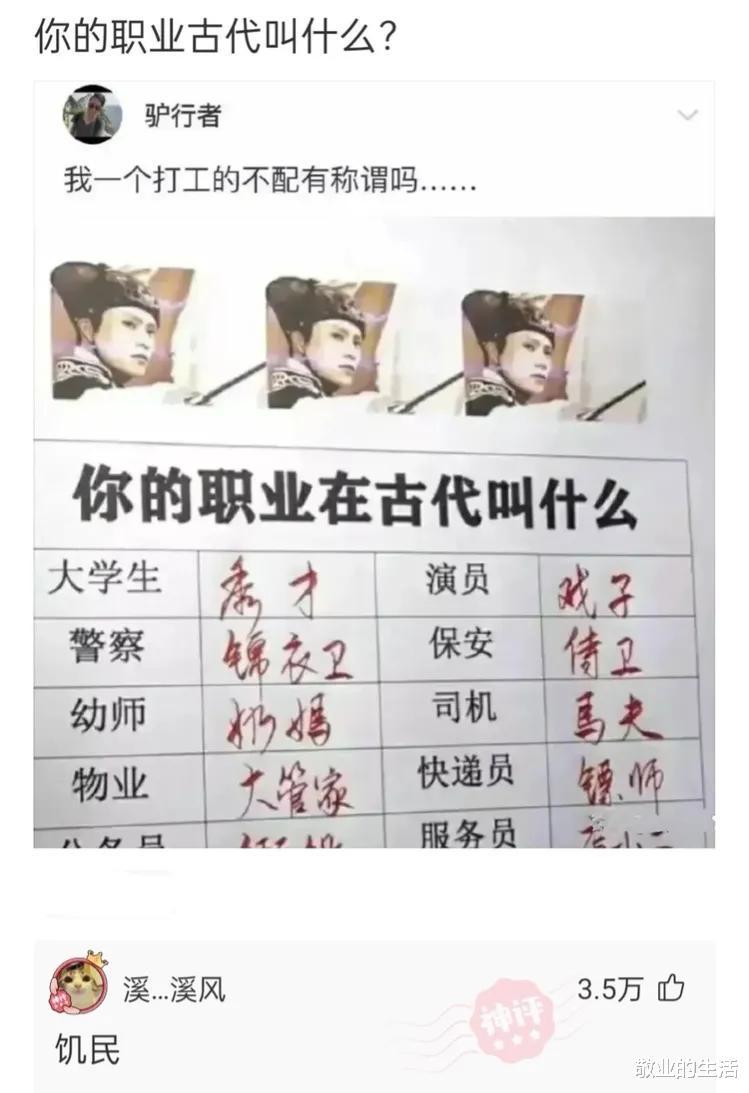 你的职业古代叫什么?
驴行者
我一个打工的不配有称谓吗……
你的职业在古代叫什么
大学生 秀才 演员 戏子
警察 锦衣卫 保安 侍卫
幼师 奶妈 司机 馬夫
物业 大管家 快递员 镖师
公务员 服务员 店小二
溪...溪风
3.5万
神评
饥民
敬业的生活